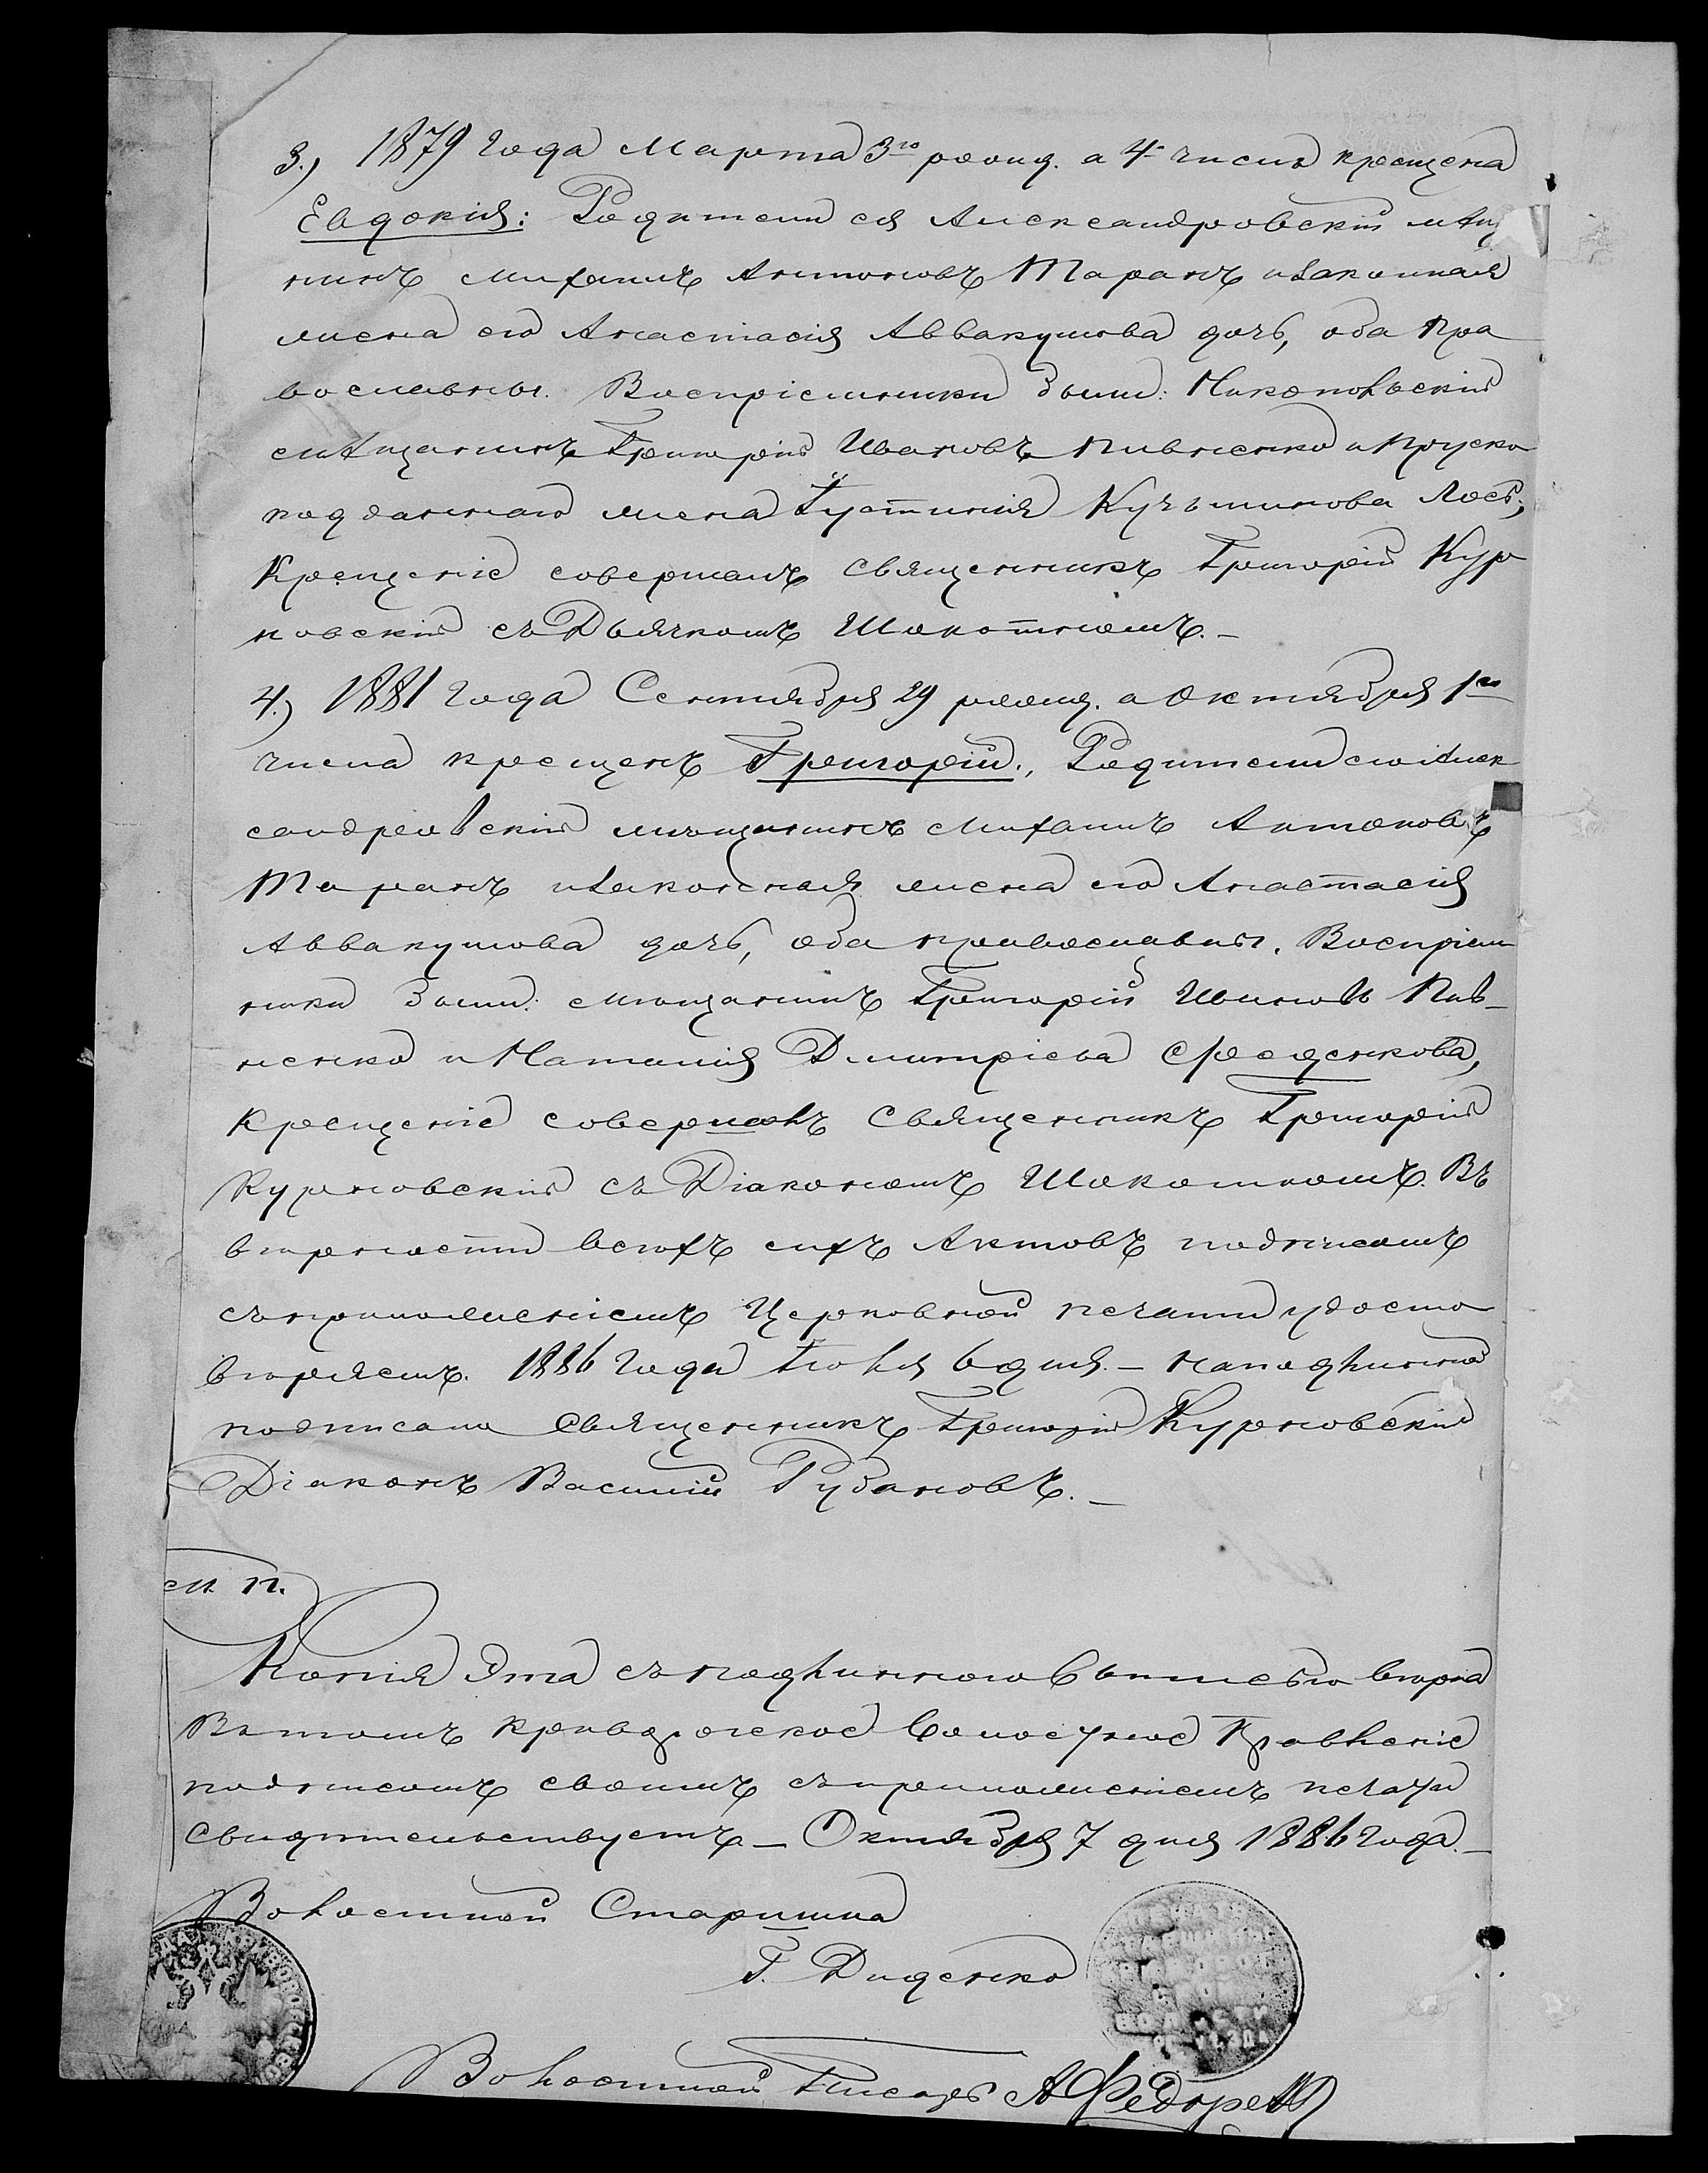 3.) 1879 года Марта 3го рожд. а 4 числа крещена
Евдокія: Родители ея Александровскій мѣщ
нинъ Михаилъ Антоновъ Таранъ и законная
жена его Анастасія Аввакумова дочь, оба пра
вославны. Воспріемники были: Никопольскій
мѣщанинъ Григорій Ивановъ Пивненко и Пруско
подданнаго жена Іустинія Кузьминова Лось;
Крещеніе совершалъ священникъ Григорій Кур
новскій съ Дьячкомъ Шокотковымъ. –
4.) 1881 года Сентября 29 рожд. а Октября 1го
числа крещенъ Григорій., Родители его Алек
сандровскій мѣщанинъ Михаилъ Антоновъ
Таранъ и законная жена его Анастасія
Аввакумова дочь, оба православны. Воспріем
ники были: мѣщанинъ Григорій Ивановъ Пив–
ненко и Наталія Дмитріева
Крещеніе совершалъ Священникъ Григорій
Курновскій съ Діакономъ Въ
вѣрности всѣхъ сихъ Актовъ подписомъ
съ приложеніемъ Церковной печати удосто
вѣряемъ. 1886 года Іюля 6 дня. – На подлинной
подписали Священникъ Григорій Курновскій
Діаконъ Василій Рубановъ. –
М. П.
Копія эта съ подлинною выписью вѣрна
Въ томъ Криворогское Волостное Правленіе
подписомъ своимъ съ приложеніемъ печати
Свидѣтельствуетъ – Октября 7 дня 1886 года. –
Волостной Старшина
Г. Диденко
Волостной Писарь А Федоре